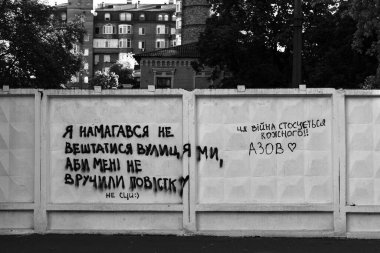 Я НАМАГАВСЯ НЕ
ВЕШТАТИСЯ ВУЛИЦЯМИ,
АБИ МЕНІ НЕ
ВРУЧИЛИ ПОВІСТКУ
НЕ СЦИ:)
ЦЯ ВІЙНА СТОСУЄТЬСЯ
КОЖНОГО!!
АЗОВ♡